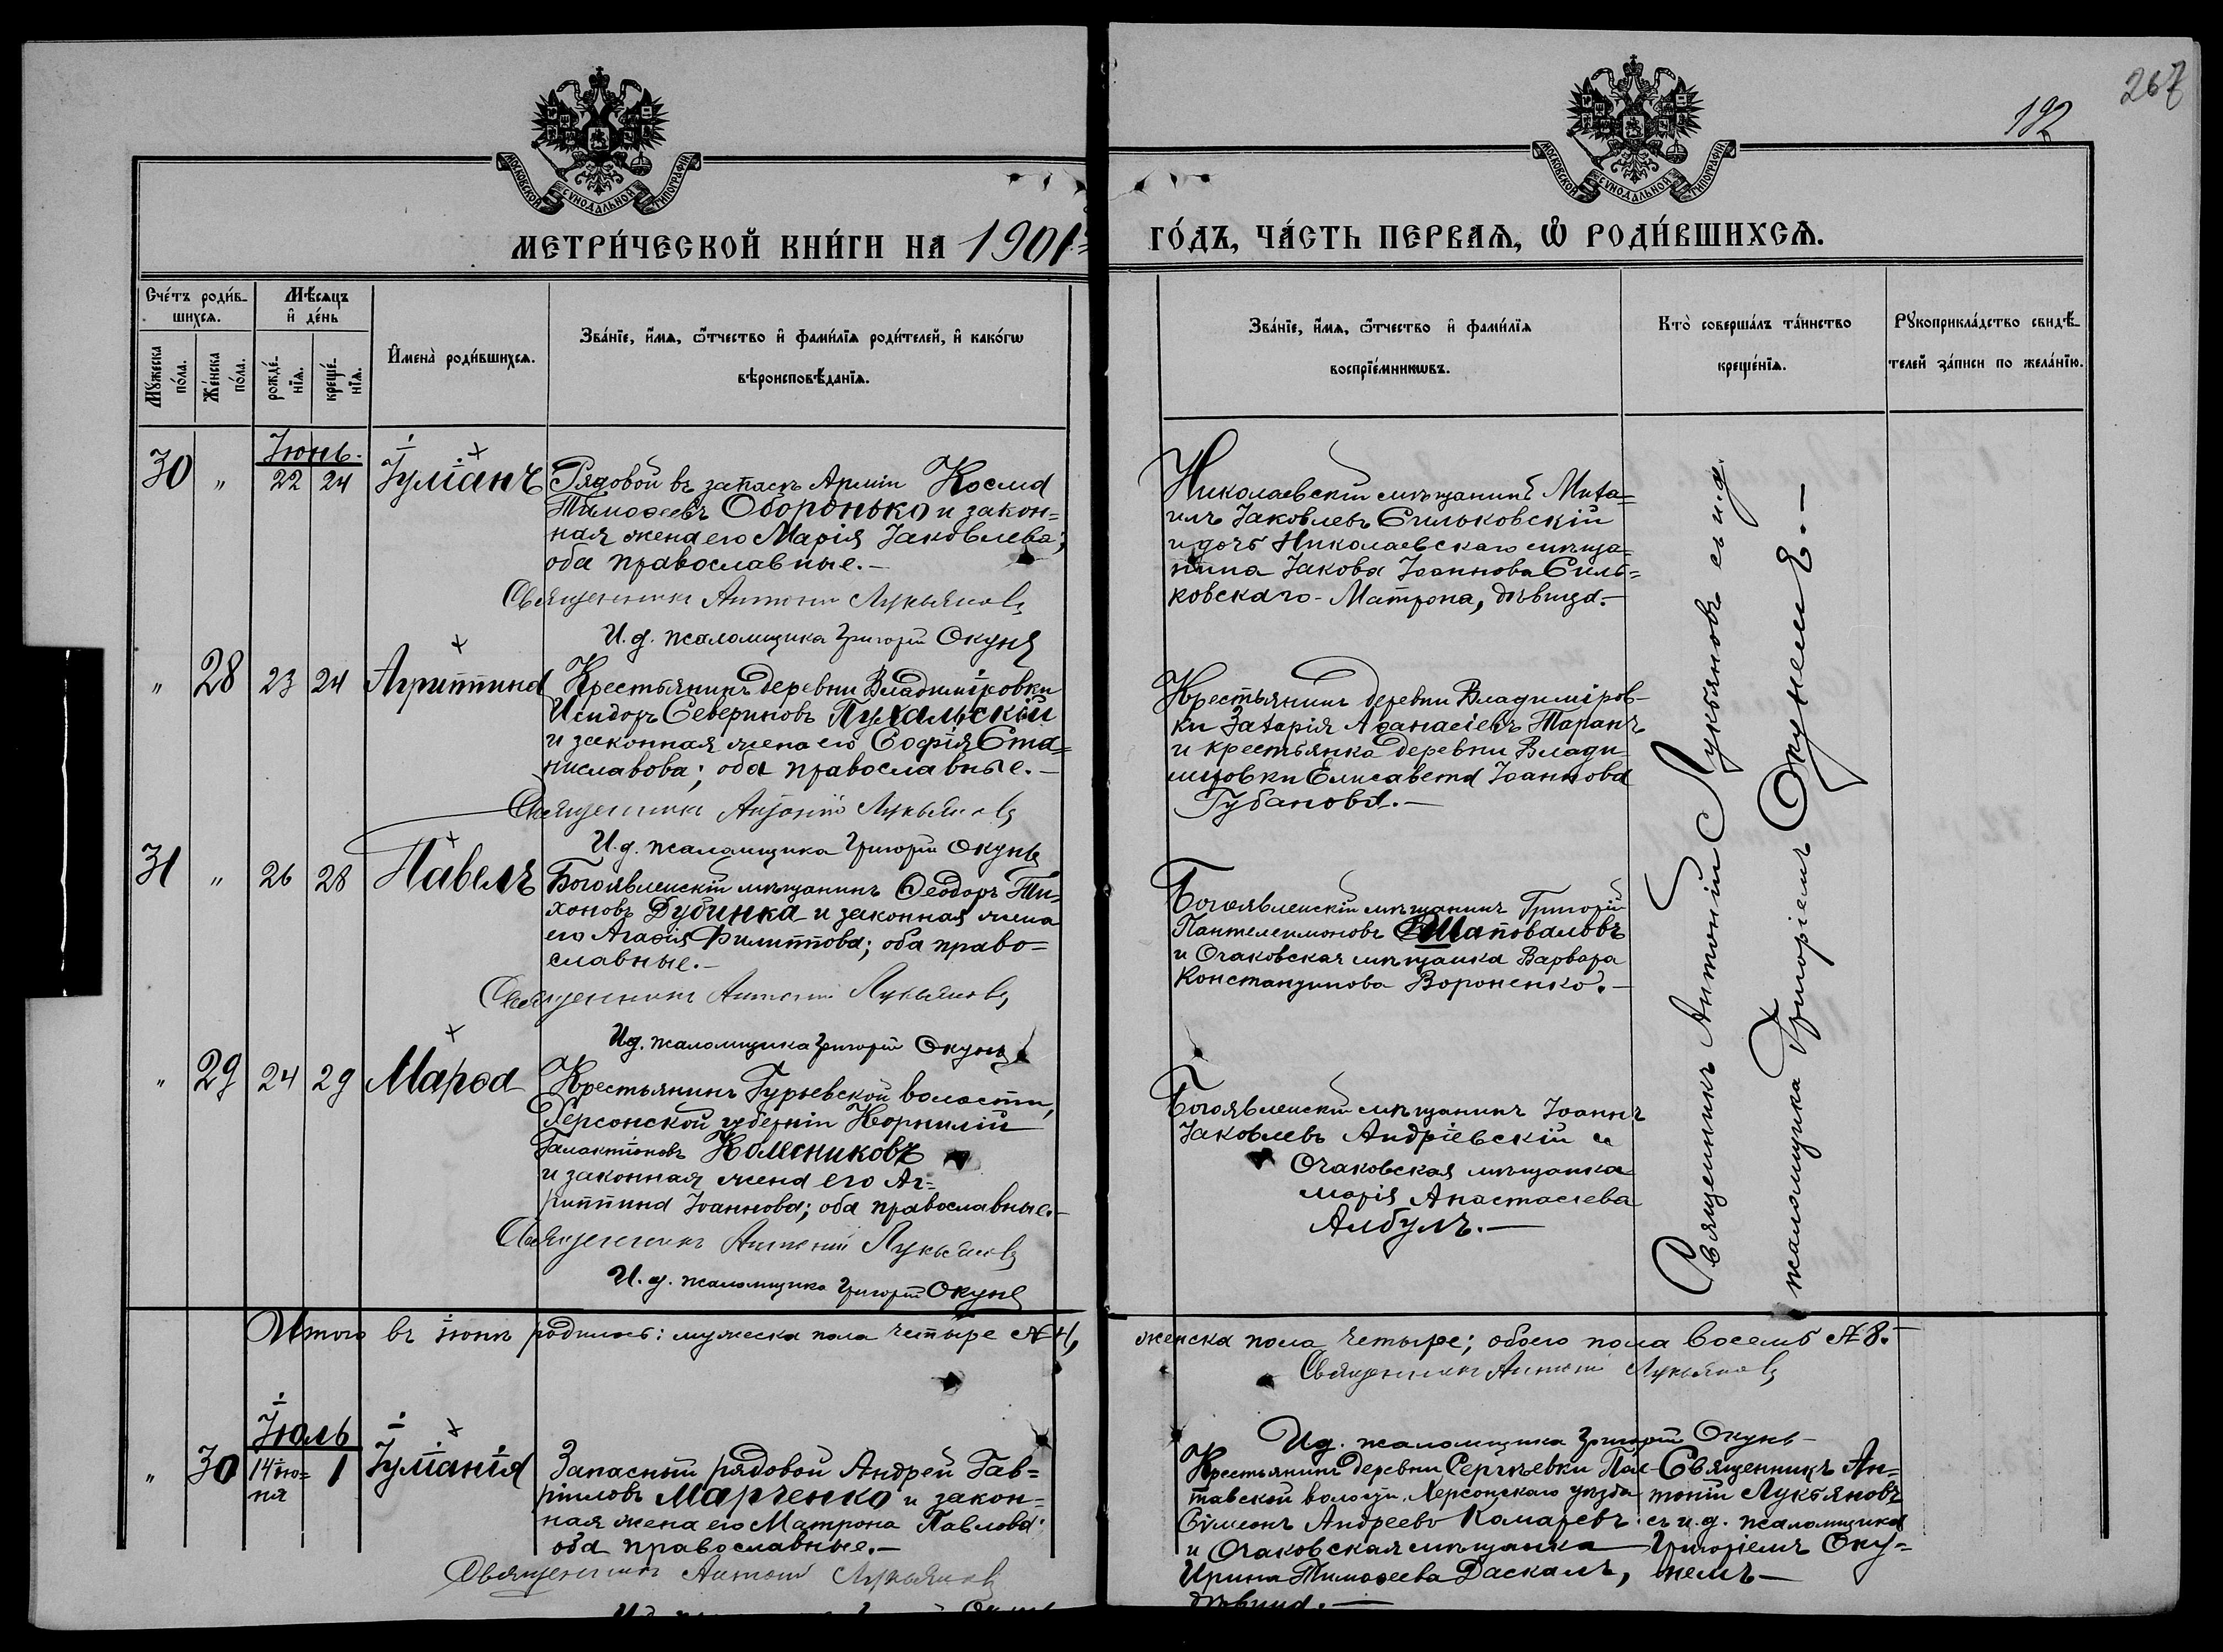 267
192
МОСКОВСКОЙ СУНОДАЛЬНОЙ ТИПОГРАФІИ
МОСКОВСКОЙ СУНОДАЛЬНОЙ ТИПОГРАФІИ
МЕТРИ́ЧЕСКОЙ КНИ́ГИ НА 1901й
ГО́ДЪ, ЧА́СТЬ ПЕРВАѦ, Ѡ РОДИ́ВШИХСѦ.
Сче́тъ роди́в-
шихсѧ.
Мѣ́сѧцъ
и҆ де́нь
Мꙋ́жеска
по́ла.
Же́нска
по́ла.
рожде́-
нїѧ.
креще́-
нїѧ.
И҆мена̀ роди́вшихсѧ.
Зва́нїе, и҆́мѧ, ѻ҆́тчество и҆ фами́лїѧ роди́телей, и҆ како́гѡ
вѣроисповѣ́данїѧ.
Зва́нїе, и҆́мѧ, ѻ҆́тчество и҆ фами́лїѧ
воспрїе́мникѡвъ.
Кто̀ соверша́лъ та́инство
креще́нїѧ.
Рꙋкоприкла́дство свидѣ́-
телей за́писи по жела́нїю.
Іюнь.
30 " 22 24 Іуліанъ
Рядовой въ запасѣ Арміи Косма
Тимоѳеевъ Оборонько и закон=
ная жена его Марія Іаковлева;
оба православные.-
Священникъ Антоній Лукьяновъ
И.д. псаломщика Григорій Окунь
Николаевскій мѣщанинъ Миха=
илъ Іаковлевъ Сильковскій
и дочь Николаевскаго мѣща=
нина Іакова Іоаннова Силь=
ковскаго - Матрона, дѣвица.-
" 28 23 24 Агриппина
Крестьянинъ деревни Владиміровки
Исидоръ Севериновъ Пухальскій
и законная жена его Софія Ста=
ниславова; оба православные.-
Священникъ Антоній Лукьяновъ
И.д. псаломщика Григорій Окунь
Крестьянинъ деревни Владиміров-
ки Захарія Аѳанасіевъ Таранъ
и крестьянка деревни Влади
міровки Елисавета Іоаннова
Губанова.-
31 " 26 28 Павелъ
Богоявленскій мѣщанинъ Ѳеодоръ Ти-
хоновъ Дубинка и законная жена
его Агаѳія Филиппова; оба право=
славные.-
Священникъ Антоній Лукьяновъ
И.д. псаломщика Григорій Окунь
Богоявленскій мѣщанинъ Григорій
Пантелеимоновъ Шаповаловъ
и Очаковская мѣщанка Варвара
Константинова Вороненко.-
" 29 24 29 Марѳа
Крестьянинъ Гурьевской волости,
Херсонской губерніи Корнилій
Галактіоновъ Колесниковъ
и законная жена его Аг=
риппина Іоаннова; оба православные.-
Священникъ Антоній Лукьяновъ
И.д. псаломщика Григорій Окунь
Богоявленскій мѣщанинъ Іоаннъ
Іаковлевъ Андріевскій и
Очаковская мѣщанка
Марія Анастасіева
Албулъ.-
Священникъ Антоній Лукьяновъ съ и.д.
псаломщика Григоріемъ Окунемъ.-
Итого въ іюнѣ родилось: мужеска пола четыре № 4,
женска пола четыре; обоего пола восемь № 8.
Священникъ Антоній Лукьяновъ
И.д. псаломщика Григорій Окунь
Іюль
" 30 14 ію= 1 Іуліанія
ня
Запасный рядовой Андрей Гав=
ріиловъ Марченко и закон=
ная жена его Матрона Павлова;
оба православные.-
Священникъ Антоній Лукьяновъ
Крестьянинъ деревни Сергѣевки Пол-
тавской волости, Херсонскаго уѣзда
Сѵмеонъ Андреевъ Комаревъ
и Очаковская мѣщанка
Ирина Тимоѳеева Даскалъ,
дѣвица.-
Священникъ Ан=
тоній Лукьяновъ
съ и.д. псаломщика
Григоріемъ Оку=
немъ-